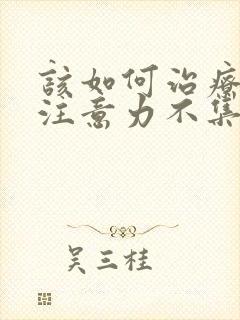 該如何治療
注意力不集
吳三桂